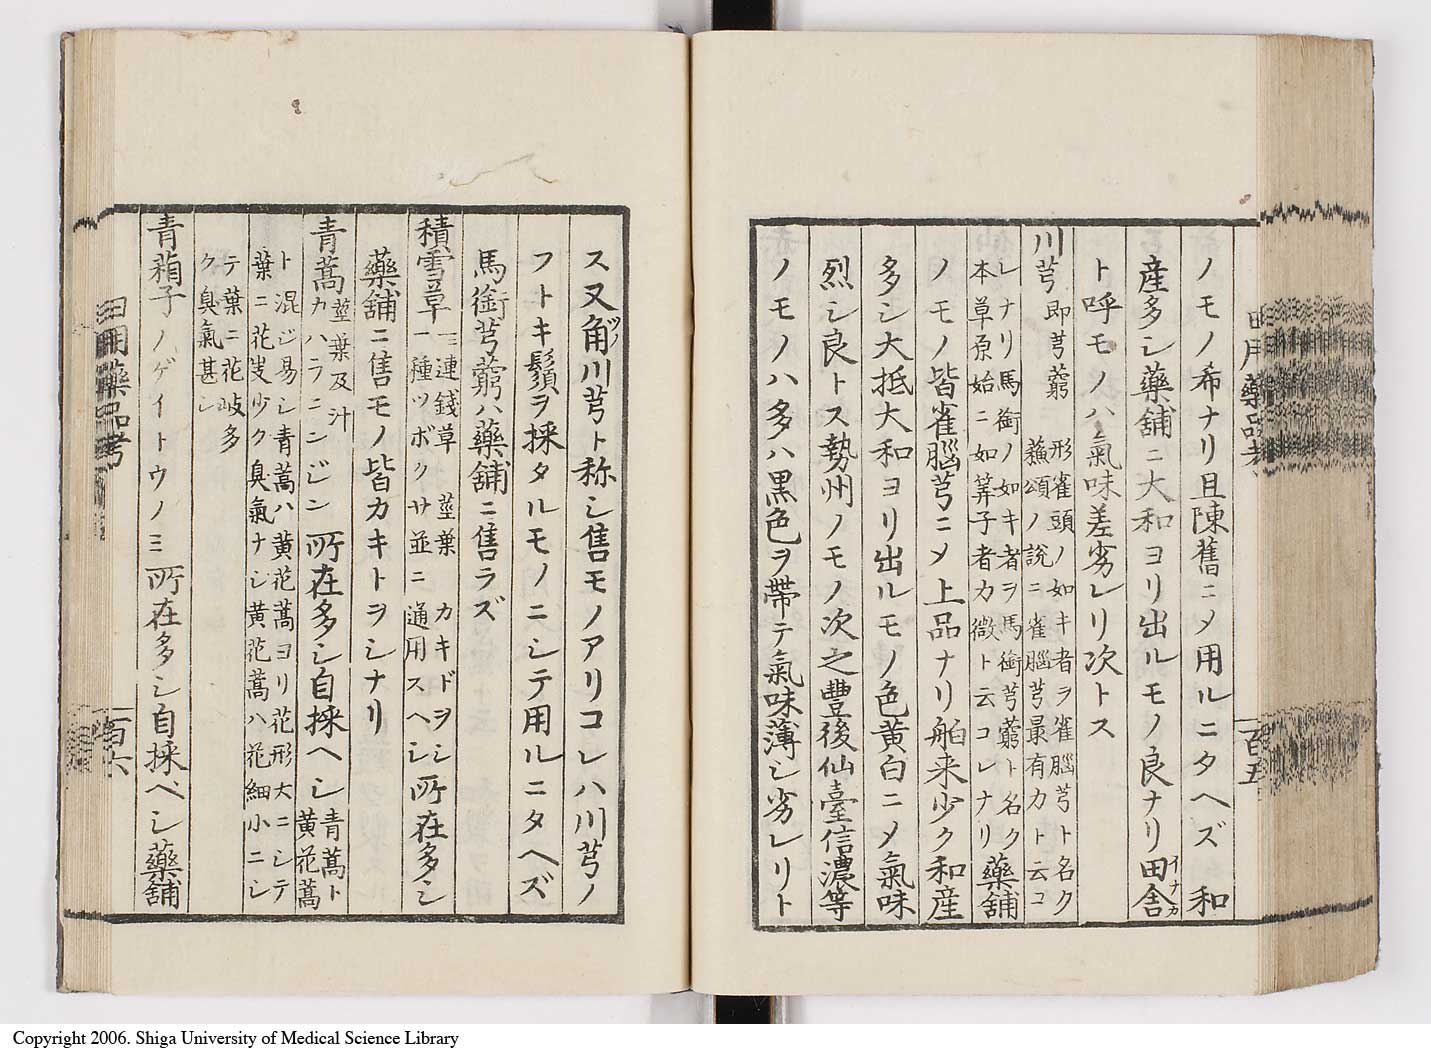 ノモノ希ナリ且陳舊ニメ用ルニタヘズ 和
産多シ藥舖ニ大和ヨリ出ルモノ良ナリ田舎イナカ
ト呼モノハ氣味差劣レリ次トス
川芎 即芎藭 形雀頭ノ如キ者ヲ雀腦芎ト名ク
蘓頌ノ説ニ雀腦芎最有力ト云コ
レナリ馬銜ノ如キ者ヲ馬銜芎藭ト名ク
本草原始ニ如筭子者力微ト云コレナリ 藥舖
ノモノ皆雀腦芎ニメ上品ナリ舶来少ク和産
多シ大抵大和ヨリ出ルモノ色黄白ニメ氣味
烈シ良トス勢州ノモノ次之豊後仙臺信濃等
ノモノハ多ハ黒色ヲ帶テ氣味薄シ劣レリト
日用藥品考 百五
ス又角ツノ川芎ト称シ售モノアリコレハ川芎ノ
フトキ鬚ヲ採タルモノニシテ用ルニタヘズ
馬銜芎藭ハ藥舖ニ售ラズ
積雪草 一ニ連錢草 莖葉 カキドヲシ 所在多シ
一種ツボクサ並ニ通用スヘシ
藥舖ニ售モノ皆カキトヲシナリ
青蒿 莖葉及汁 カハラニンジン 所在多シ自採ヘシ 青蒿ト
黄花蒿
ト混ジ易シ青蒿ハ黄花蒿ヨリ花形大ニシテ
葉ニ花叟少ク臭氣ナシ黄花蒿ハ花細小ニシ
テ葉ニ花岐多
ク臭氣甚シ
青葙子 ノゲイトウノミ 所在多シ自採ベシ藥舖
日用藥品考 百六
Copyright 2006. Shiga University of Medical Science Library